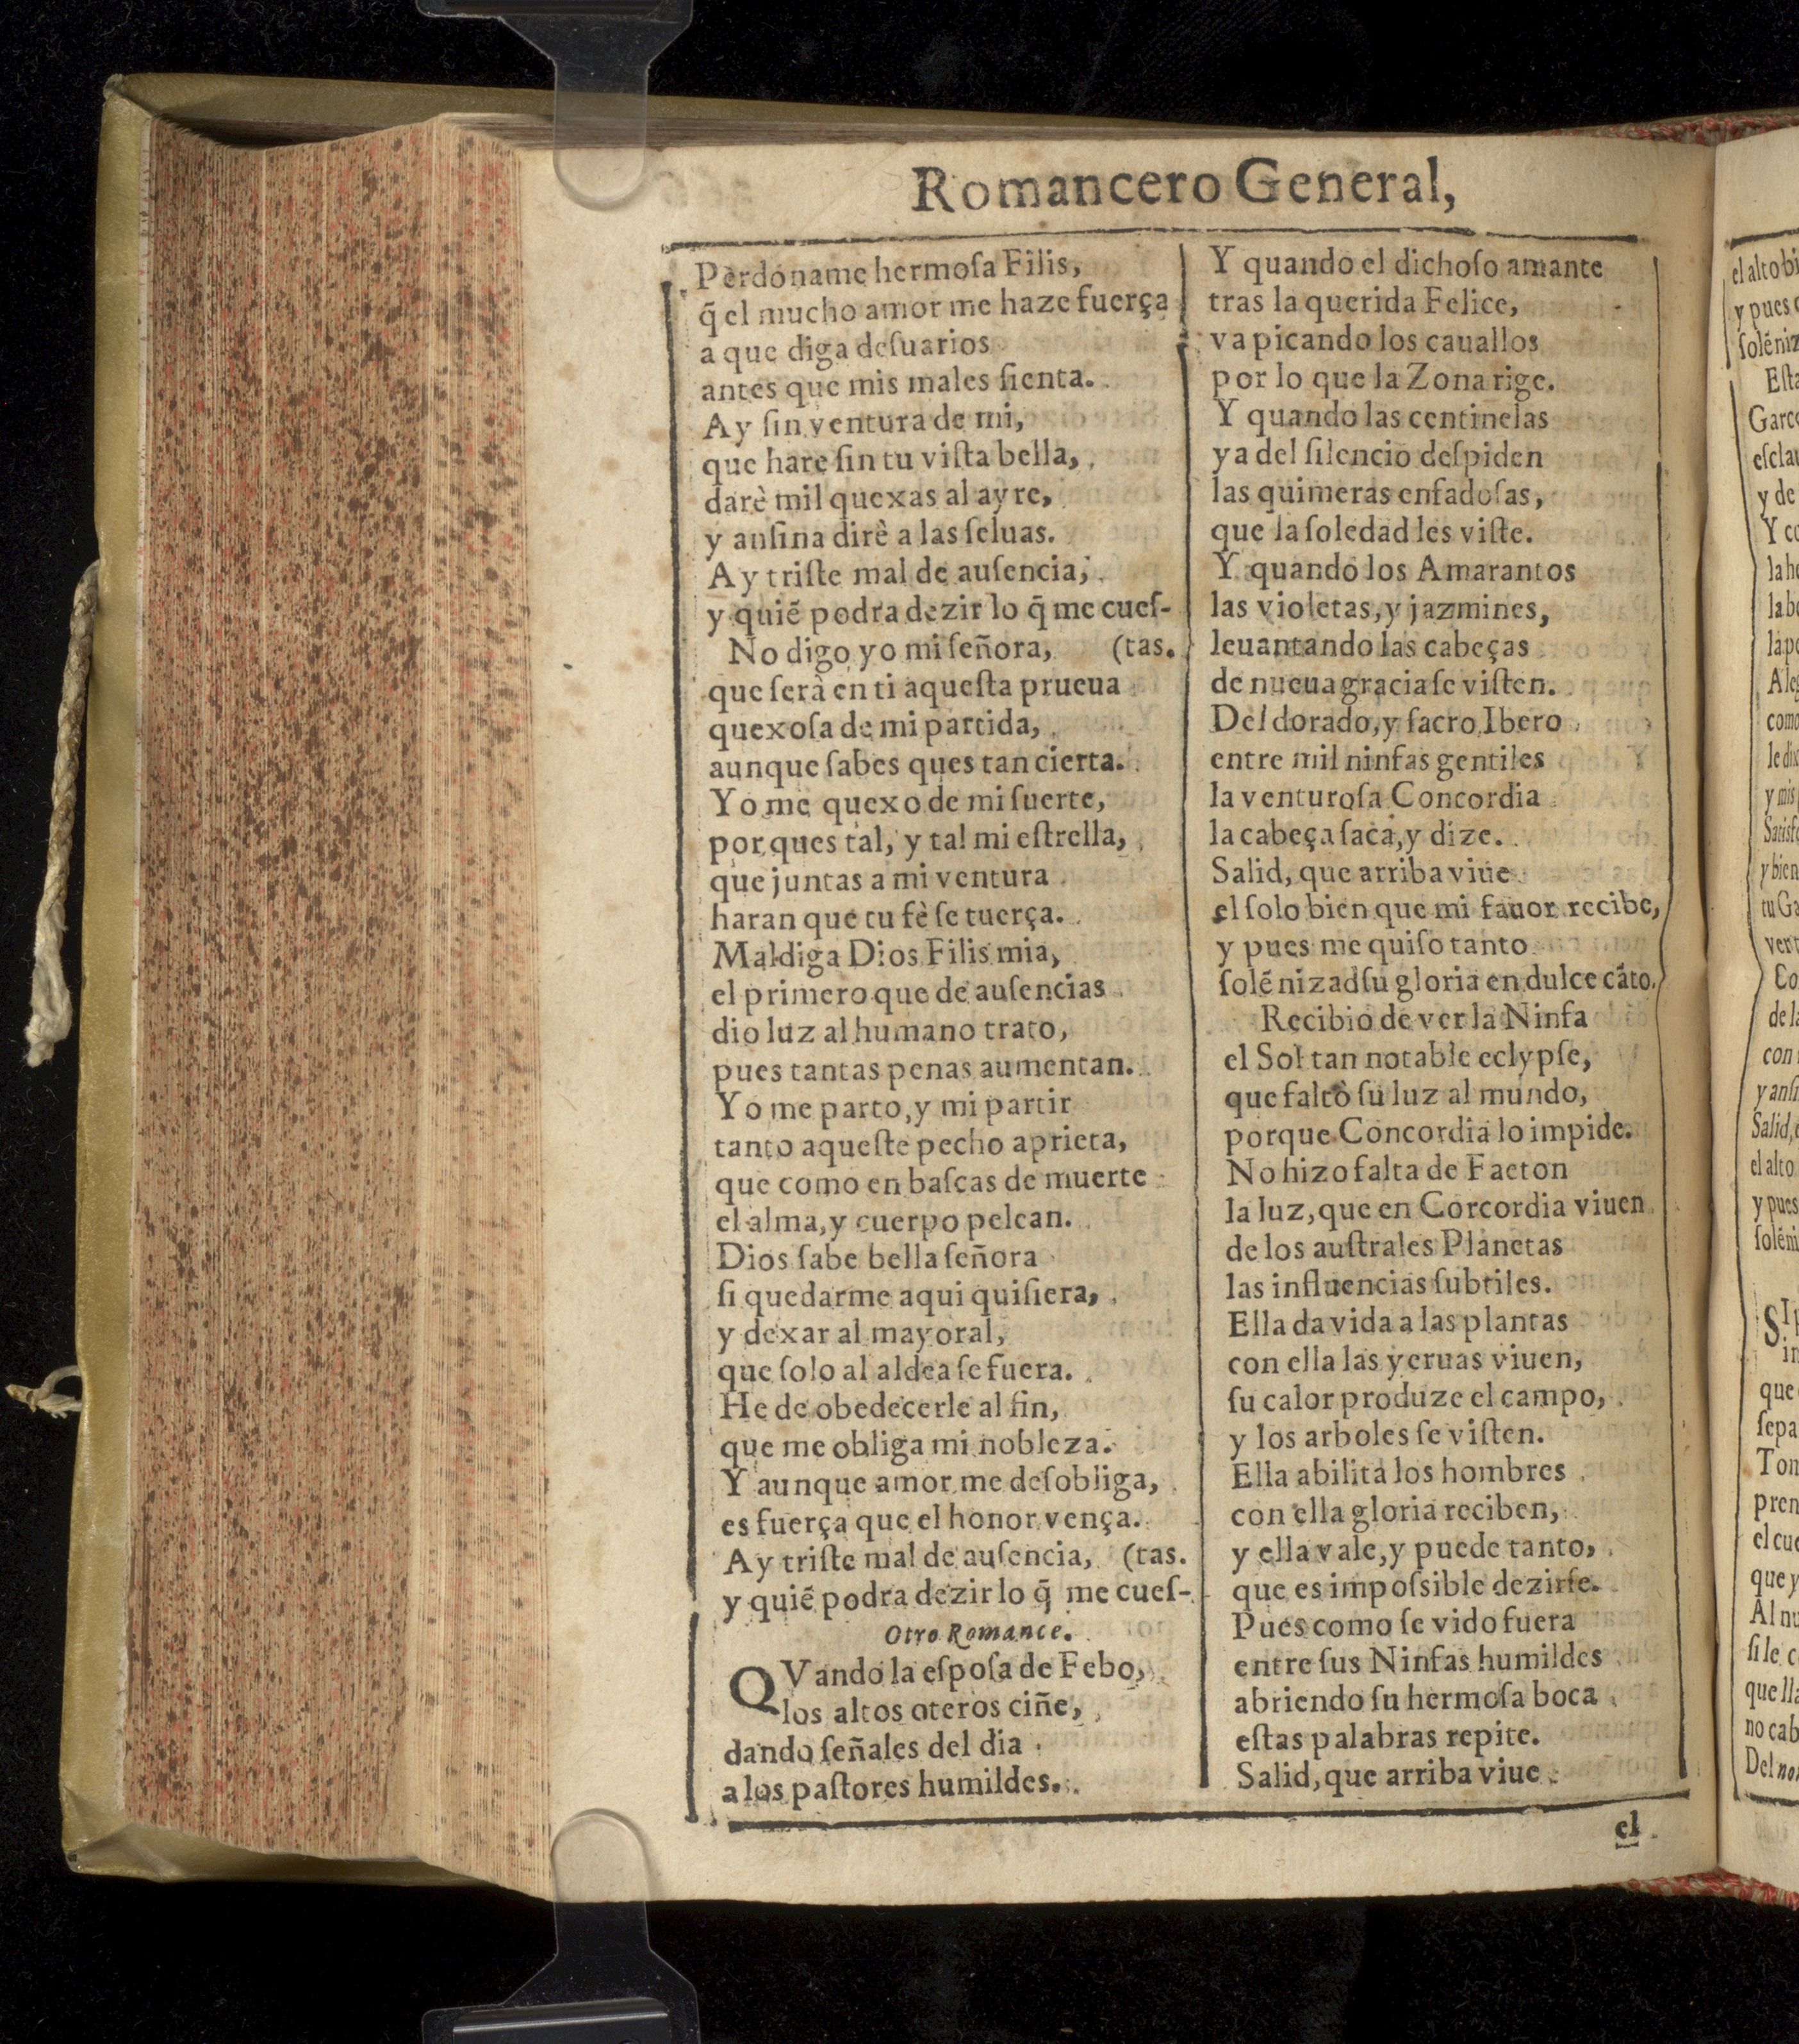 Romancero General,
Perdoname hermoſa Filis,
q̃ el mucho amor me haze fuerça
a que diga deſuarios
antes que mis males ſienta.
Ay ſin ventura de mi,
que hare ſin tu viſta bella,
darè mil quexas al ayre,
y anſina dirè a las ſeluas.
Ay triſte mal de auſencia,
y quiẽ podra dezir lo q̃ me cueſ-
No digo yo mi ſeñora, (tas.
que ſerà en ti aqueſta prueua
quexoſa de mi partida,
aunque ſabes ques tan cierta.
Yo me quexo de mi ſuerte,
porques tal, y tal mi eſtrella,
que juntas a mi ventura
haran que tu fè ſe tuerça.
Maldiga Dios Filis mia,
el primero que de auſencias
dio luz al humano trato,
pues tantas penas aumentan.
Yo me parto, y mi partir
tanto aqueſte pecho aprieta,
que como en baſcas de muerte
el alma, y cuerpo pelean.
Dios ſabe bella ſeñora
ſi quedarme aqui quiſiera,
y dexar al mayoral,
que ſolo al aldea ſe fuera.
He de obedecerle al fin,
que me obliga mi nobleza.
Y aunque amor me deſobliga,
es fuerça que el honor vença.
Ay triſte mal de auſencia, (tas.
y quiẽ podra dezir lo q̃ me cueſ-
Otro Romance.
QVando la eſpoſa de Febo,
los altos oteros ciñe,
dando ſeñales del dia
a los paſtores humildes.
Y quando el dichoſo amante
tras la querida Felice,
va picando los cauallos
por lo que la Zona rige.
Y quando las centinelas
ya del ſilencio deſpiden
las quimeras enfadoſas,
que la ſoledad les viſte.
Y quando los Amarantos
las violetas, y jazmines,
leuantando las cabeças
de nueua gracia ſe viſten.
Del dorado, y ſacro Ibero
entre mil ninfas gentiles
la venturoſa Concordia
la cabeça ſaca, y dize.
Salid, que arriba viue
el ſolo bien que mi fauor recibe,
y pues me quiſo tanto
ſolẽnizad ſu gloria en dulce cãto.
Recibio de ver la Ninfa
el Sol tan notable eclypſe,
que faltò ſu luz al mundo,
porque Concordia lo impide.
No hizo falta de Faeton
la luz, que en Corcordia viuen
de los auſtrales Planetas
las influencias ſubtiles.
Ella da vida a las plantas
con ella las yeruas viuen,
ſu calor produze el campo,
y los arboles ſe viſten.
Ella abilita los hombres
con ella gloria reciben,
y ella vale, y puede tanto,
que es impoſsible dezirſe.
Pues como ſe vido fuera
entre ſus Ninfas humildes
abriendo ſu hermoſa boca
eſtas palabras repite.
Salid, que arriba viue
el
el alto
y pues
y de
Salid,
el alto
y pues
que
Del